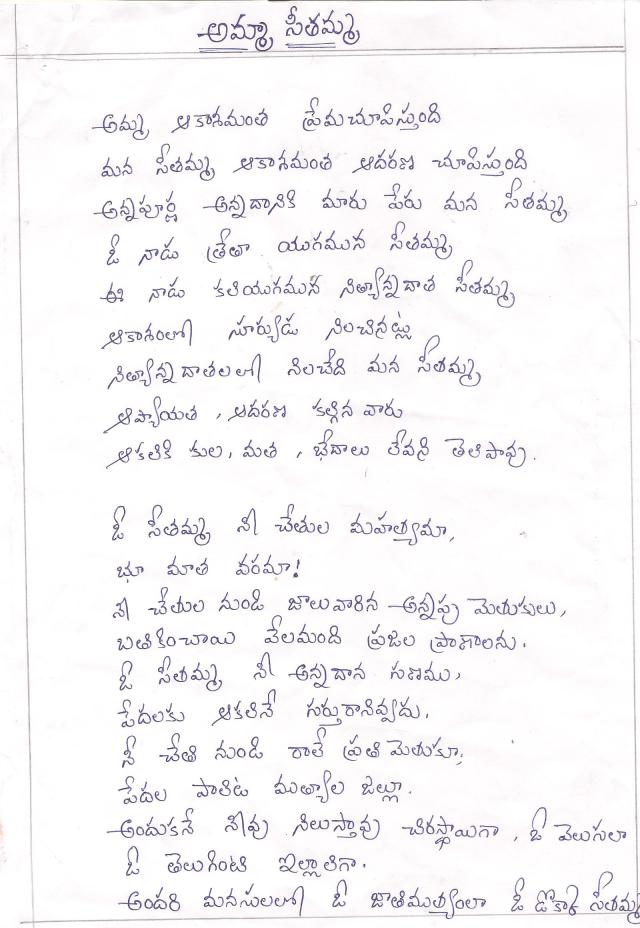 అమ్మా సీతమ్మ
అమ్మ ఆకాశమంత ప్రేమచూపిస్తుంది
మన సీతమ్మ ఆకాశమంత ఆదరణ చూపిస్తుంది
అన్నపూర్ణ అన్నదానికి మారు పేరు మన సీతమ్మ
ఓ నాడు త్రేతా యుగమున సీతమ్మ
ఈ నాడు కలియుగమున నిత్యాన్నదాత సీతమ్మ
ఆకాశంలో సూర్యుడు నిలచినట్లు
నిత్యాన్న దాతలలో నిలచేది మన సీతమ్మ
ఆప్యాయత, ఆదరణ కల్గిన వారు
ఆకలికి కుల, మత, భేదాలు లేవని తెలిపావు.
ఓ సీతమ్మ నీ చేతుల మహత్యమా,
భూ మాత వరమా!
నీ చేతుల నుండి జాలువారిన అన్నపు మెతుకులు,
బతికించాయి వేలమంది ప్రజల ప్రాణాలను.
ఓ సీతమ్మ నీ అన్నదాన గుణము,
పేదలకు ఆకలినే గుర్తురానివ్వదు.
నీ చేతి నుండి రాలే ప్రతి మెతుకూ,
పేదల పాలిట ముత్యాల జల్లూ.
అందుకనే నీవు నిలుస్తావు చిరస్థాయిగా, ఓ వెలుసలా
ఓ తెలుగింటి ఇల్లాలిగా.
అందరి మనసులలో ఓ జాతిముత్యంలా ఓ డొక్కా సీతమ్మ